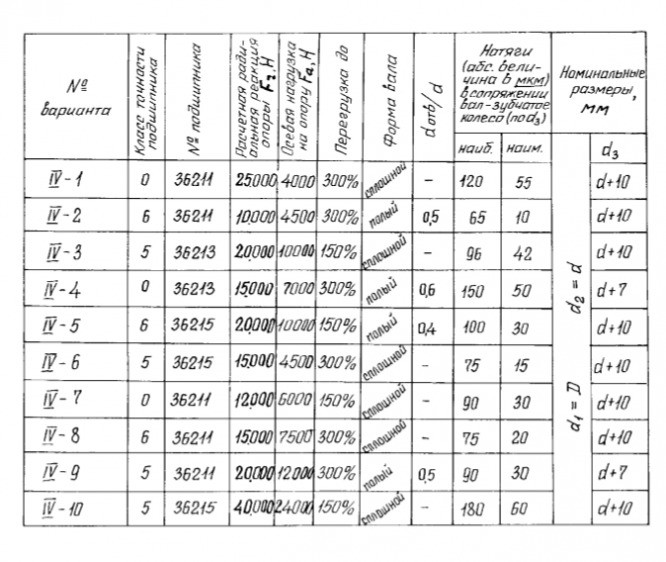 № варианта
Класс точности подшипника
№ подшипника
Расчетная радиальная реакция опоры Fr, Н
Осевая нагрузка на опору Fa, Н
Перегрузка до
Форма вала
dотв/d
Натяги (абс. величина в мкм) в сопряжении вал-зубчатое колесо (по d3)
наиб. наим.
Номинальные размеры, мм
d3
d1 = D d2 = d
IV-1 0 36211 25000 4000 300% сплошной – 120 55 d+10
IV-2 6 36211 10000 4500 300% полый 0,5 65 10 d+10
IV-3 5 36213 20000 10000 150% сплошной – 96 42 d+10
IV-4 0 36213 15000 7000 300% полый 0,6 150 50 d+7
IV-5 6 36215 20000 10000 150% полый 0,4 100 30 d+10
IV-6 5 36215 15000 4500 300% сплошной – 75 15 d+10
IV-7 0 36211 12000 6000 150% сплошной – 90 30 d+10
IV-8 6 36211 15000 7500 300% сплошной – 75 20 d+10
IV-9 5 36211 20000 12000 300% полый 0,5 90 30 d+7
IV-10 5 36215 40000 24000 150% сплошной – 180 60 d+10